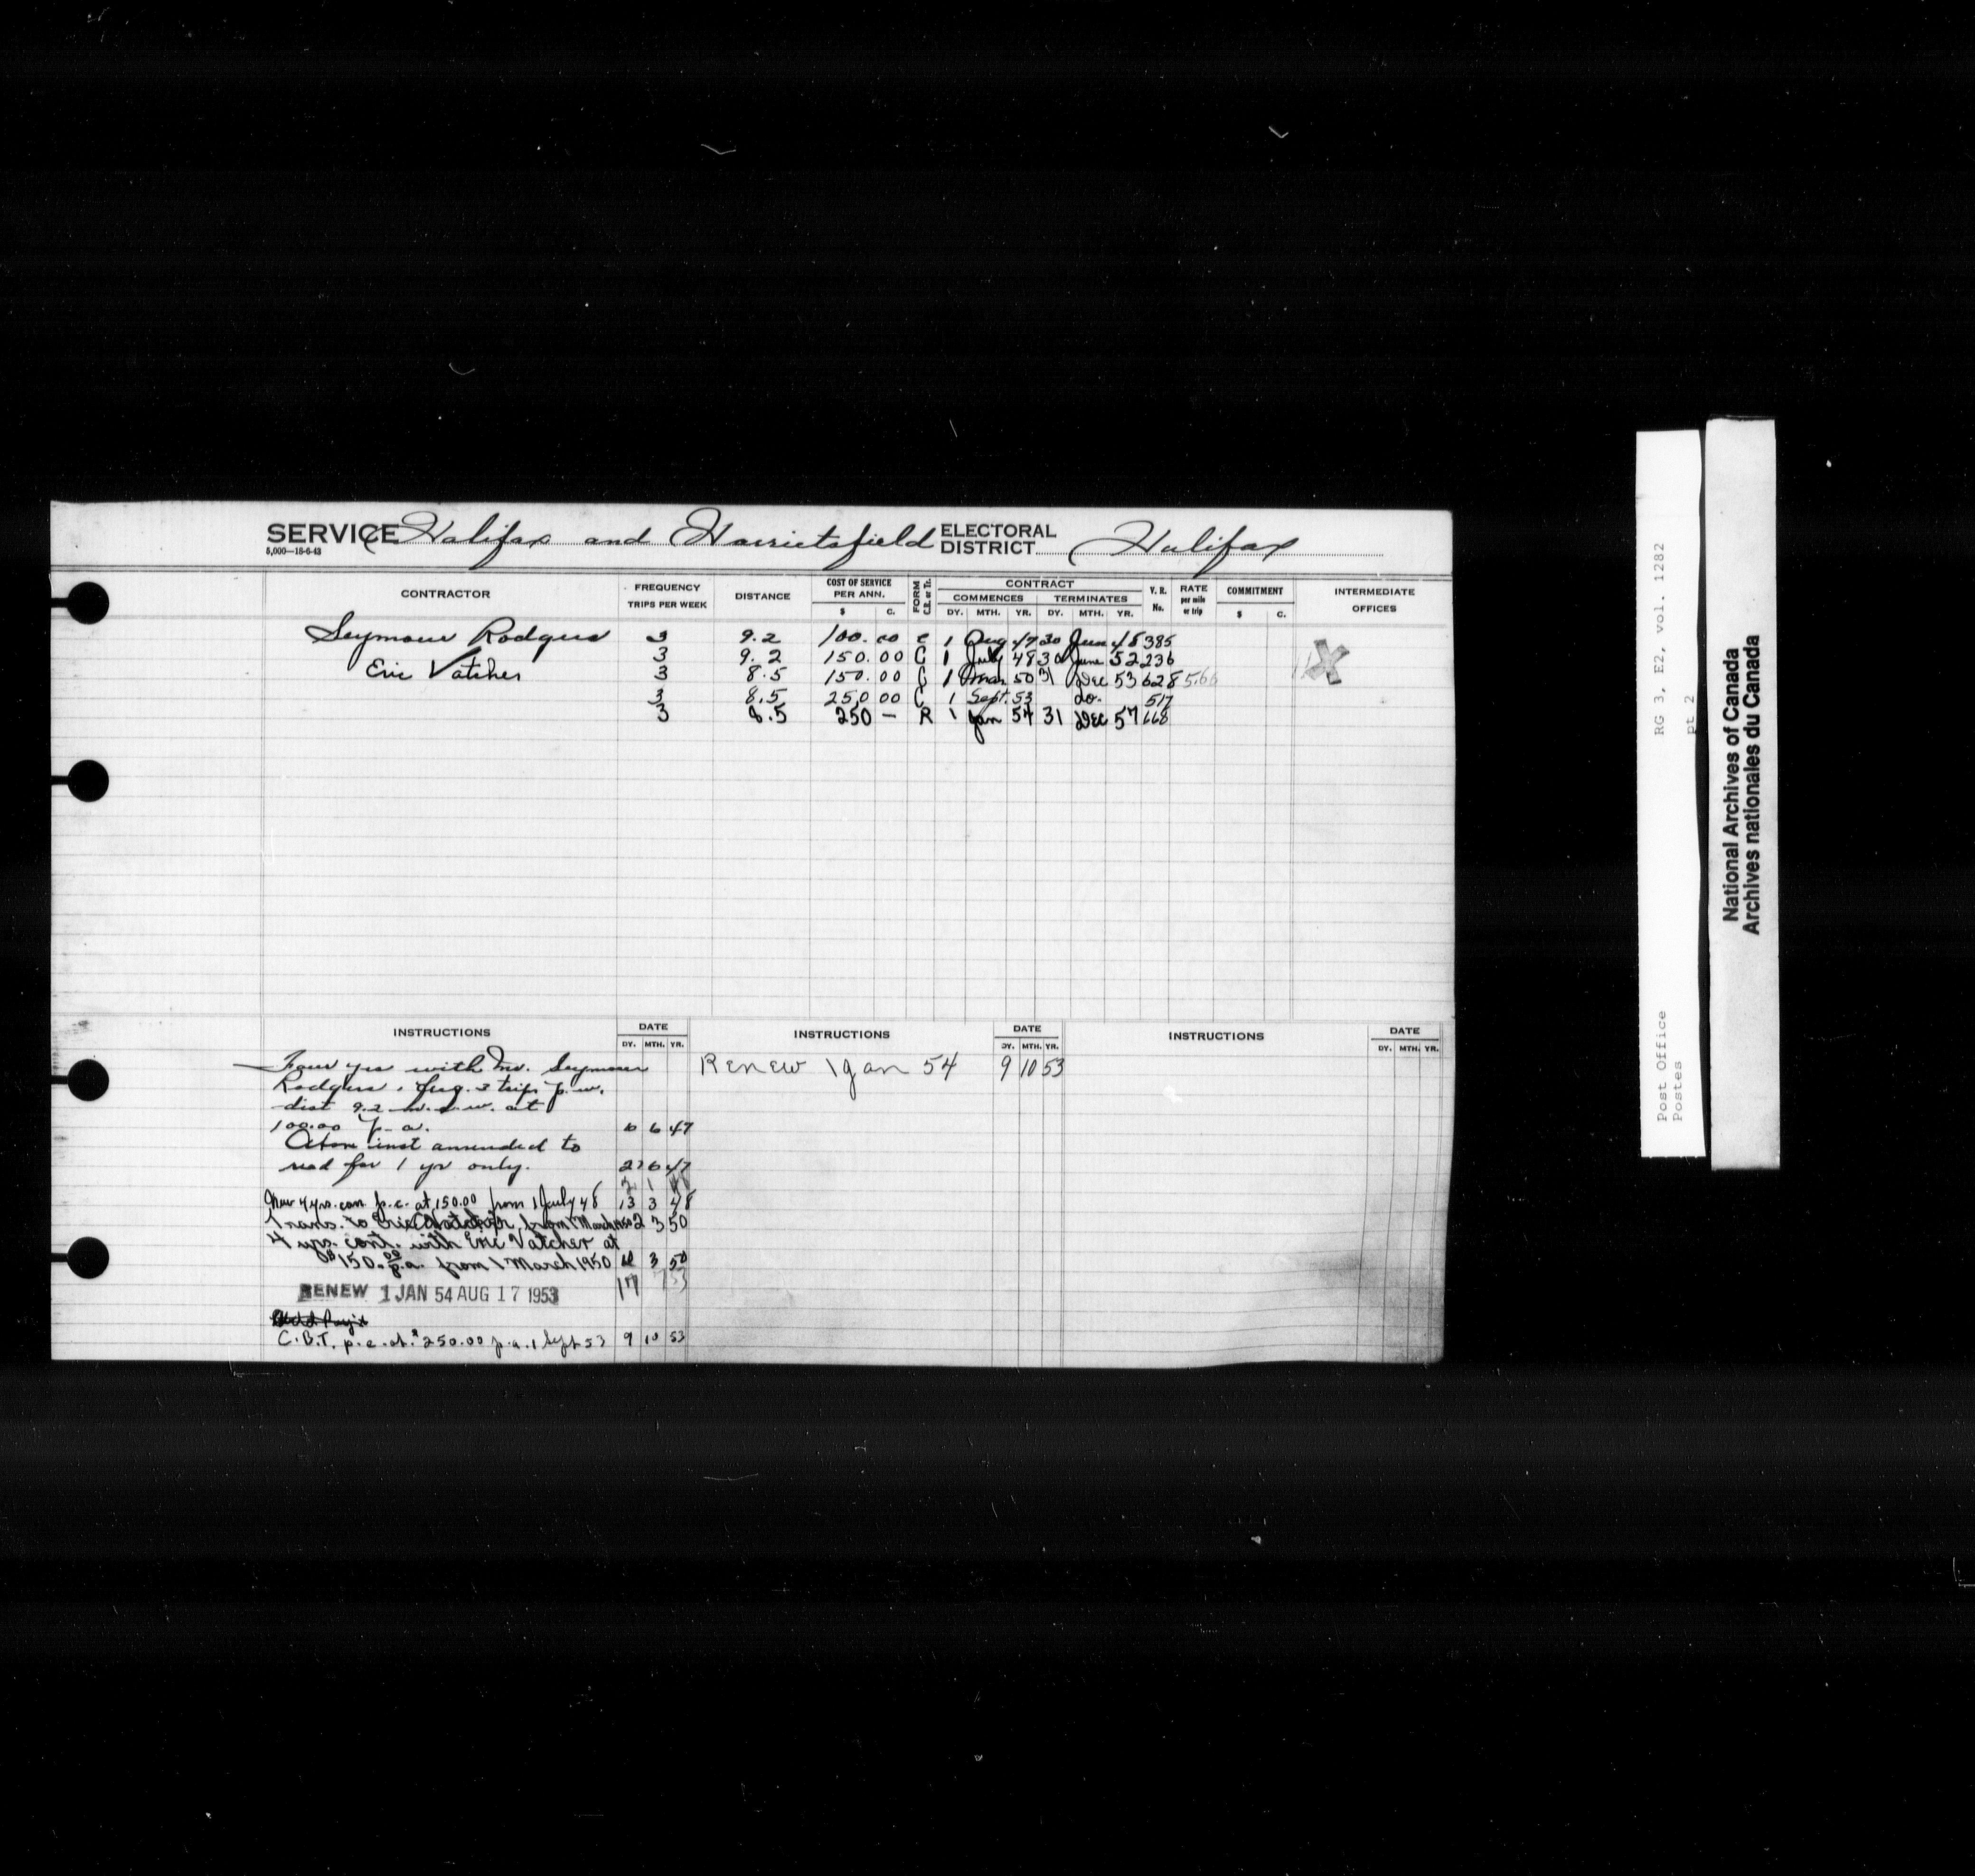 SERVICE Halifax and Harrietsfield ELECTORAL DISTRICT Halifax
5,000—18-6-43
CONTRACTOR FREQUENCY TRIPS PER WEEK DISTANCE COST OF SERVICE PER ANN. $ C. FORM C.R. or Tr. CONTRACT COMMENCES DY. MTH. YR. TERMINATES DY. MTH. YR. V. R. No. RATE per mile or trip COMMITMENT $ C. INTERMEDIATE OFFICES
Seymour Rodgers 3 9.2 100.00 C 1 Aug 47 30 June 48 385
3 9.2 150.00 C 1 July 48 30 June 52 236
Eric Vatcher 3 8.5 150.00 C 1 Mar 50 31 Dec 53 628 5.66
3 8.5 250 00 C 1 Sept. 53 do. 517
3 8.5 250 — R 1 Jan 54 31 Dec 57 668
INSTRUCTIONS DATE DY. MTH. YR. INSTRUCTIONS DATE DY. MTH. YR. INSTRUCTIONS DATE DY. MTH. YR.
Four yrs with Mr. Seymour
Rodgers, freq. 3 trips p.w.
dist 9.2 at
100.00 p.a. 6 47
Above inst amended to
read for 1 yr only. 27 6 47
New 4 yrs. con. p.c. at 150.00 from 1 July 48 13 3 48
Trans. to Eric Vatcher from 1 March 1950 2 3 50
4 yrs. cont. with Eric Vatcher at
$150.00 p.a. from 1 March 1950 3 50
RENEW 1 JAN 54 AUG 17 1953 17
C.B.T. p.c. at $250.00 p.a. 1 Sept 53 9 10 53
Renew 1 Jan 54 9 10 53
RG 3, E2, vol. 1282
pt 2
Post Office
Postes
National Archives of Canada
Archives nationales du Canada